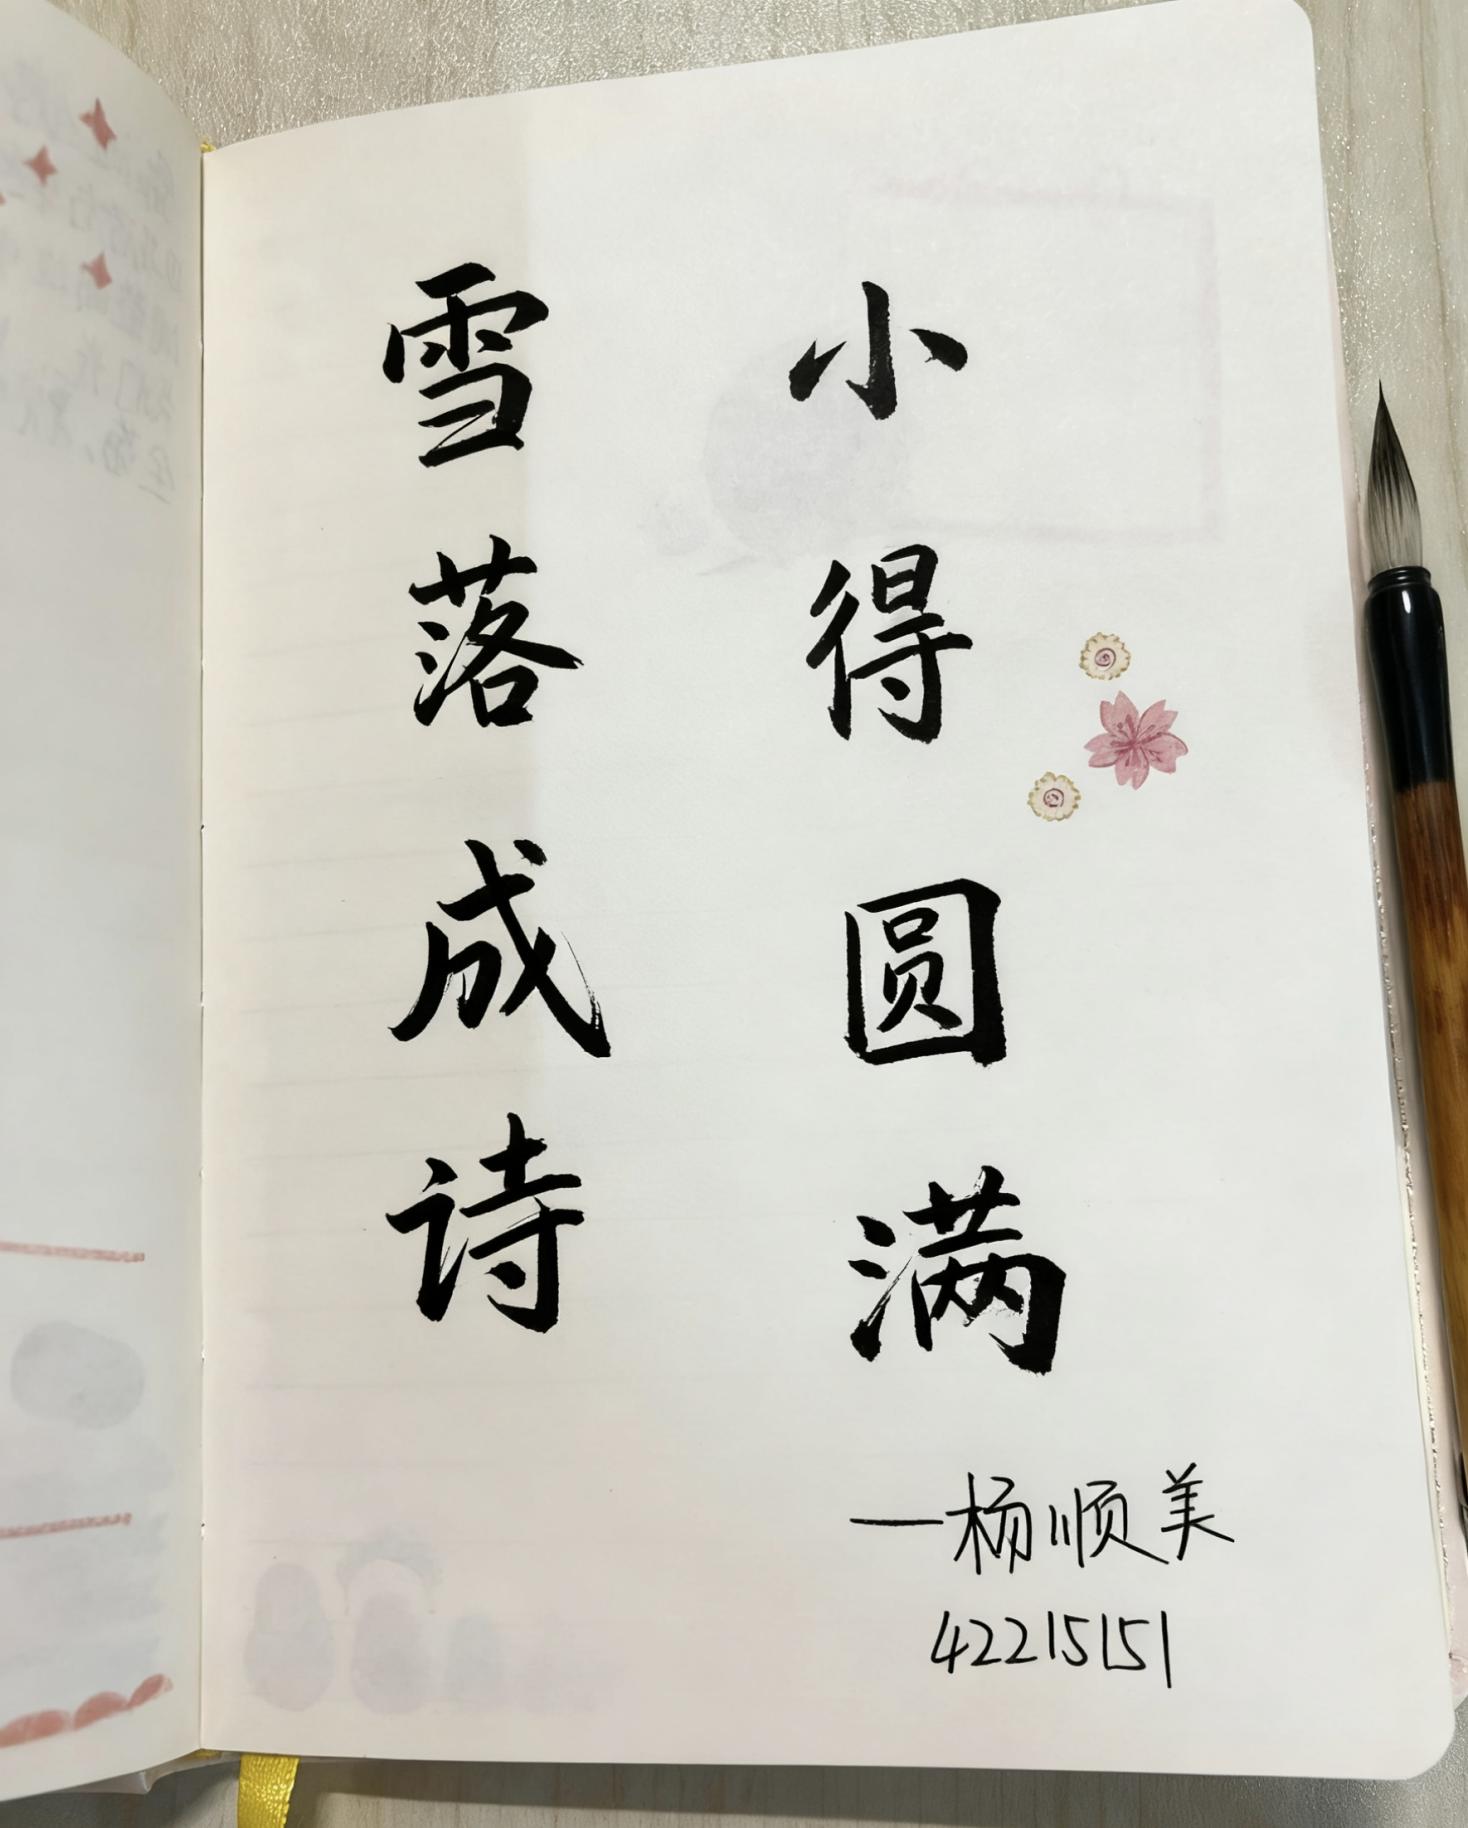 小得圆满
雪落成诗
—杨顺美
42215151